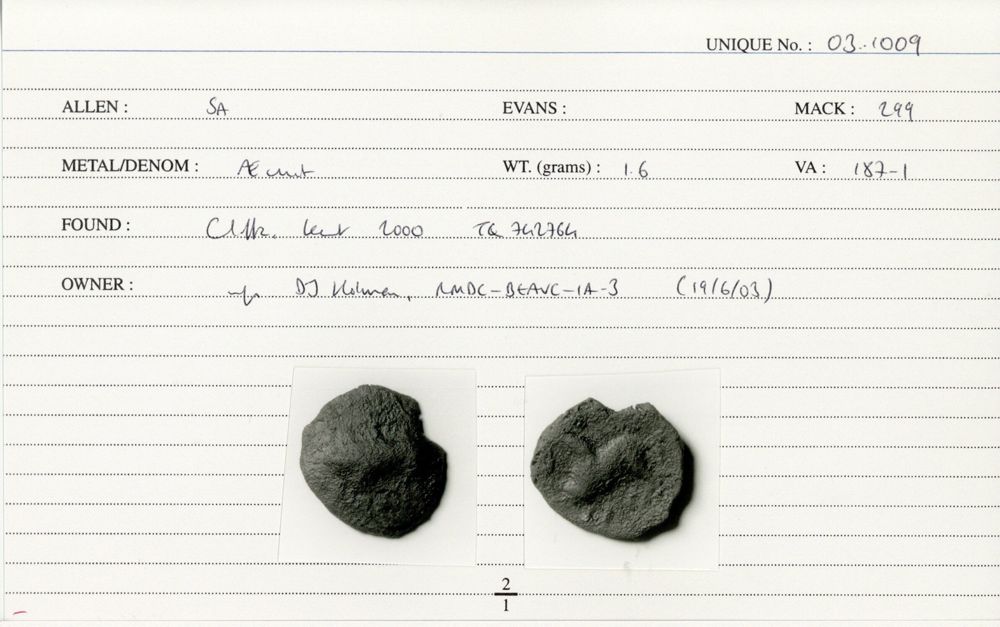 UNIQUE No. : 03.1009
ALLEN : SA EVANS : MACK : 299
METAL/DENOM : Æ unit WT. (grams) : 1.6 VA : 187-1
FOUND : Cliffe. Kent 2000 TQ 742764
OWNER : DJ Holman, RMDC-BEAVC-IA-3 (19/6/03)
2
1